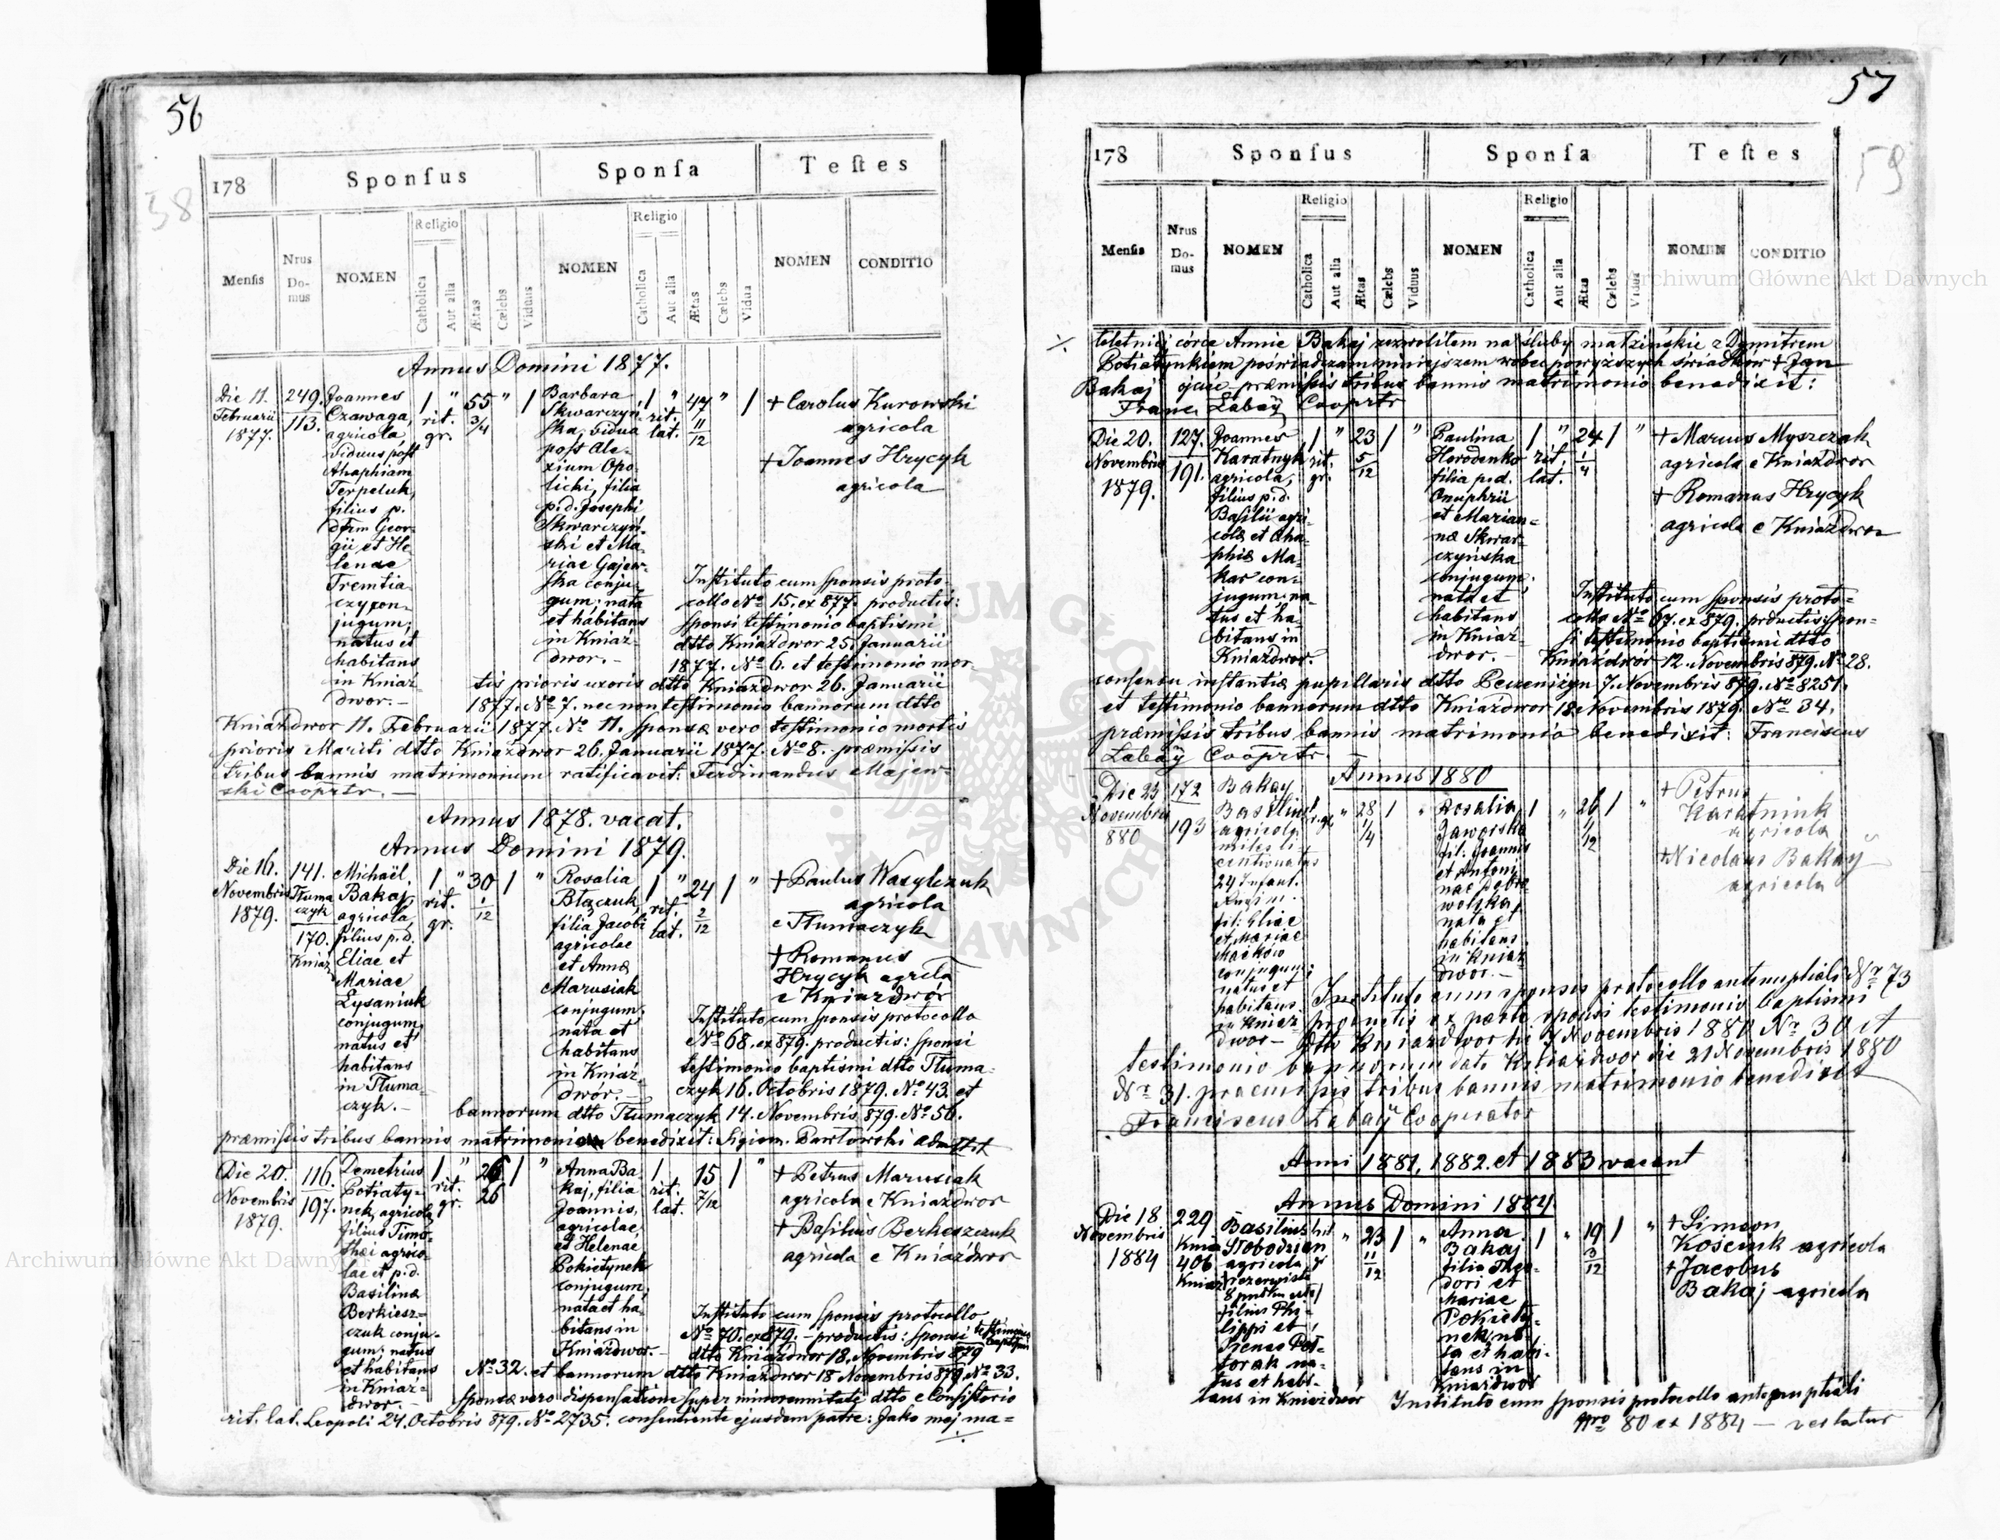 56
38
178 Sponsus Sponsa Testes
Mensis Nrus Domus NOMEN Religio Catholica Aut alia Ætas Cælebs Viduus NOMEN Religio Catholica Aut alia Ætas Cælebs Vidua NOMEN CONDITIO
Annus Domini 1877.
Die 11.
Februarii
1877.
249.
113.
Joannes
Czawaga,
agricola,
viduus post
Ahaphiam
Terpeluk,
filius p.
dfrm Geor-
gii et He-
lenae
Tremtia-
czy con-
jugum;
natus et
habitans
in Kniaż-
dwor.-
1 rit. gr.
"
55 3/4
"
1
Barbara
Skwarczyń-
ska, vidua
post Ale-
xium Opo-
licki, filia
p.d. Josephi
Skwarczyń-
ski et Ma-
riae Gajew-
ska conju-
gum; nata
et habitans
in Kniaż-
dwor.-
1 rit. lat.
"
47 11/12
"
1
+ Carolus Kurowski
agricola
+ Joannes Hrycyk
agricola
Instituto cum sponsis proto-
collo No 15. ex 877. productis:
sponsi testimonio baptismi
dtto Kniaźdwor 25. Januarii
1877. No 6. et testimonio mor-
tis prioris uxoris dtto Kniaźdwor 26. Januarii
1877. No 7. nec non testimonio bannorum dtto
Kniaźdwor 11. Februarii 1877. No 11. sponsæ vero testimonio mortis
prioris Mariti dtto Kniaźdwor 26. Januarii 1877. No 8. præmissis
tribus bannis matrimonium ratificavit: Ferdinandus Majew-
ski Cooprtr.-
Annus 1878. vacat.
Annus Domini 1879.
Die 16.
Novembris
1879.
141.
Tłuma
czyk
170.
Kniaż
Michaël
Bakaj,
agricola,
filius p.d.
Eliae et
Mariae
Lysaniuk
conjugum;
natus et
habitans
in Tłuma-
czyk.-
1 rit. gr.
"
30 1/12
1
"
Rosalia
Błazczuk,
filia Jacobi
agricolae
et Annæ
Marusiak
conjugum;
nata et
habitans
in Kniaź-
dwór.-
1 rit. lat.
"
24 2/12
1
"
+ Paulus Wasylczuk
agricola
e Tłumaczyk
+ Romanus
Hrycyk agrcla
e Kniazdwór
Instituto cum sponsis protocollo
No 68. ex 879. productis: sponsi
testimonio baptismi dtto Tłuma-
czyk 16. Octobris 1879. No 43. et
bannorum dtto Tłumaczyk 14. Novembris 879. No 56.
præmissis tribus bannis matrimonio benedixit: Sigism. Pawłowski
Die 20.
Novembris
1879.
116.
197.
Demetrius
Potiaty-
nek, agricola,
filius Timo-
thei agrico-
lae et p.d.
Basilinæ
Berkiesz-
czuk conju-
gum; natus
et habitans
in Kniaz-
dwor.-
1 rit. gr.
"
26
26
1
"
Anna Ba-
kaj, filia
Joannis,
agricolae,
et Helenae
Pokietynek
conjugum;
nata et ha-
bitans in
Kniazdwor.-
1 rit. lat.
15 7/12
1
"
+ Petrus Marusiak
agricola e Kniazdwor
+ Basilius Berkeszczuk
agricola e Kniazdwor
Instituto cum sponsis protocollo
No 70. ex 879. - productis: sponsi testimonio baptismi
dtto Kniazdwor 18. Novembris 879
No 32. et bannorum dtto Kniazdwor 18 Novembris 879. No 33.
sponsæ vero dispensatione super minorennitate dtto e Consistorio
rit. lat. Leopoli 24. Octobris 879. No 2735. consentiente ejusdem patre: Jako mej ma=
./.
57
59
178 Sponsus Sponsa Testes
Mensis Nrus Domus NOMEN Religio Catholica Aut alia Ætas Cælebs Viduus NOMEN Religio Catholica Aut alia Ætas Cælebs Vidua NOMEN CONDITIO
./. łoletniej córce Annie Bakaj zezwoliłem na śluby małżeńskie z Dymitrem
Potiatynkiem poświadczam niniejszem wobec powyższych świadków + Jan
Bakaj ojciec præmissis tribus bannis matrimonio benedixit:
Franc Łabaÿ Cooprtr
Die 20.
Novembris
1879.
127.
191.
Joannes
Karatnyk
agricola,
filius p.d.
Basilii agri-
colæ et Aha-
phiæ Ma-
kar con-
jugum; na-
tus et ha-
bitans in
Kniaźdwor.
1 rit. gr.
"
23 5/12
1
"
Paulina
Horodenko
filia p.d.
Onuphrii
et Marian-
næ Skwar-
czyńska
conjugum;
nata et
habitans
in Kniaź-
dwor.-
1 rit. lat.
"
24 1/4
1
"
+ Marcus Myszczak
agricola e Kniaźdwor
+ Romanus Hrycyk
agricola e Kniaźdwor
Instituto cum sponsis proto-
collo No 67. ex 879. prductis: spon-
si testimonio baptismi dtto
Kniaźdwór 12. Novembris 879. No 28.
consensu instantiæ pupillaris dtto Peczeniżyn 7. Novembris 879. No 8251.
et testimonio bannorum dtto Kniaźdwor 18 Novembris 1879. No 34.
præmissis tribus bannis matrimonio benedixit: Franciscus
Łabaÿ Cooprtr.
Annus 1880
Die 23
Novembris
880
172
193
Bakay
Basilius
agricola
miles li-
centionatus
24 Infant.
Regim.
fil: Eliae
et Mariae
Maćków
conjugum;
natus et
habitans
in Kniaz-
dwor-
1 r. gr.
"
28 1/4
1
"
Rosalia
Jaworska
fil: Joannis
et Antoni-
nae Dobro-
wolska
nata et
habitans
in Kniaz-
dwor.-
1
"
26 1/12
1
"
+ Petrus
Karatniuk
agricola
+ Nicolaus Bakaÿ
agricola
Instituto cum sponsis protocollo antenuptiali Nr 73
productis ex parte sponsi testimonio baptismi
dtto Kniazdwor die 7 Novembris 1880 Nr 30 et
testimonio bannorum dato Kniazdwor die 21 Novembris 1880
Nr 31. praemissis tribus bannis matrimonio benedixit
Franciscus Łabaÿ Cooperator
Anni 1881, 1882. et 1883 vacant
Annus Domini 1884.
Die 18
Novembris
1884
229
Kniaz
406
Kniaz
Basilius
Słobodzian
agricola
rezerwista
filius Phi-
lippi et
Xenae Pas-
torak na-
tus et habi-
tans in Kniazdwor
"
23 11/12
1
"
Anna
Bakaj
filia Theo-
dori et
Mariae
Pokiety-
nek na-
ta et habi-
tans in
Kniazdwor
1
"
19 3/12
1
"
+ Simeon
Kościuk agricola
+ Jacobus
Bakaj agricola
Instituto cum sponsis protocollo antenuptiali
Nro 80 ex 1884 — vertatur
Archiwum Główne Akt Dawnych
Archiwum Główne Akt Dawnych
ARCHIWUM GŁÓWNE AKT DAWNYCH